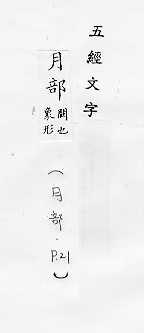 五經文字
月部 闕也象形
（月部．P.21）